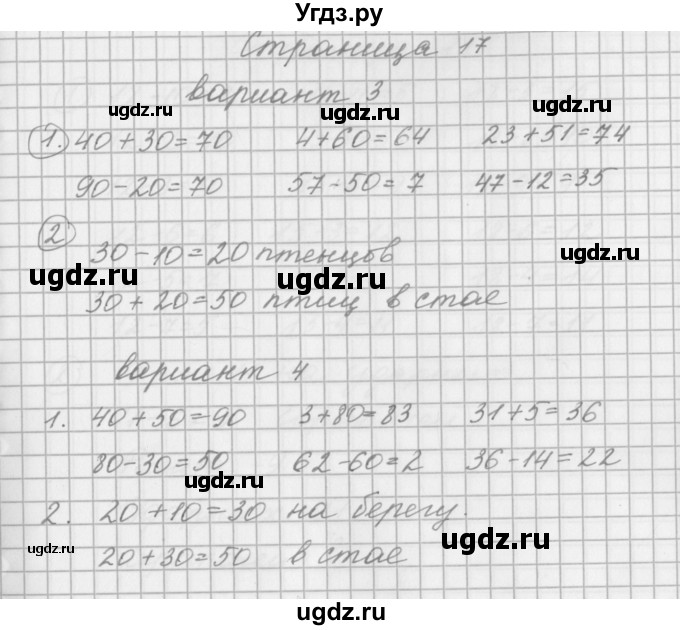 Угдз.ру
Страница 17
вариант 3
1. 40+30=70 4+60=64 23+51=74
90-20=70 57-50=7 47-12=35
2
30-10=20 птенцов
30+20=50 птиц в стае
вариант 4
1. 40+50=90 3+80=83 31+5=36
80-30=50 62-60=2 36-14=22
2. 20+10=30 на берегу.
20+30=50 в стае
ugdz.ru
ugdz.ru
ugdz.ru
ugdz.ru
ugdz.ru
ugdz.ru
ugdz.ru
ugdz.ru
ugdz.ru
ugdz.ru